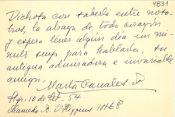 4831
Dichosa con saberlo entre noso-
tros, lo abraza de todo corazón
y espera tener algún día un mi-
nuto para hablarle, su
antigua admiradora e invariable
amiga.
Marta Canales P.
Agr. 10 de 54
B. O'Higgins